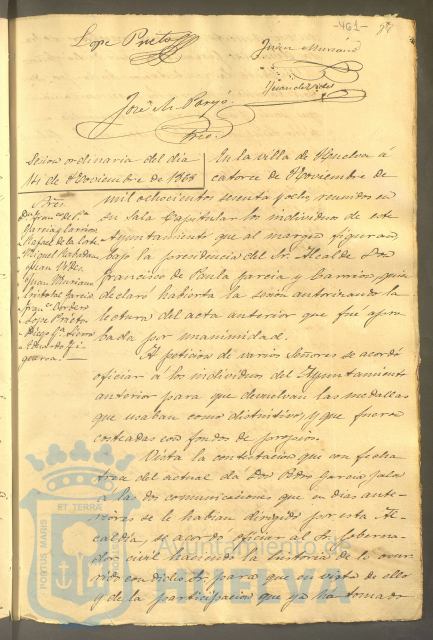 -461-
Lope Prieto
Juan Muriano
José M. Parejo
Srio
Sesion ordinaria del dia
14 de Noviembre de 1868
En la villa de Huelva á
catorce de Noviembre de
mil ochocientos sesenta y ocho, reunidos en
su Sala Capitular los individuos de este
Ayuntamiento que al margen figuran
bajo la presidencia del Sr. Alcalde Don
Francisco de Paula Garcia y Carrion, quien
declaró habierta la sesion autorizando la
lectura del acta anterior que fue apro
bada por unanimidad.
Pres.
Dn. Franco. de Pla.
Garcia y Carrion
Rafael de la Corte
Miguel Rabadan
Juan
Juan Muriano
Cristobal Garcia
Franco. Cordero
Lope Prieto
Diego Sierra
Eduardo Fi
gueroa.
A peticion de varios Señores se acordó
oficiar a los individuos del Ayuntamiento
anterior para que devuelvan las medallas
que usaban como distintivos, y que fueron
costeadas con fondos de propios.
Vista la contestacion que con fecha
trece del actual dá Don Pedro Garcia Jalon
á las dos comunicaciones que en dias ante-
riores se le habian dirigido por esta Al-
caldia, se acordó oficiar al Sr. Goberna-
dor civil haciendo la historia de lo ocur
rido con dicho Sr. para que en vista de ello
y de la participacion que ya ha tomado
PORTUS MARIS
ET TERRÆ
Ayuntamiento de
HUELVA